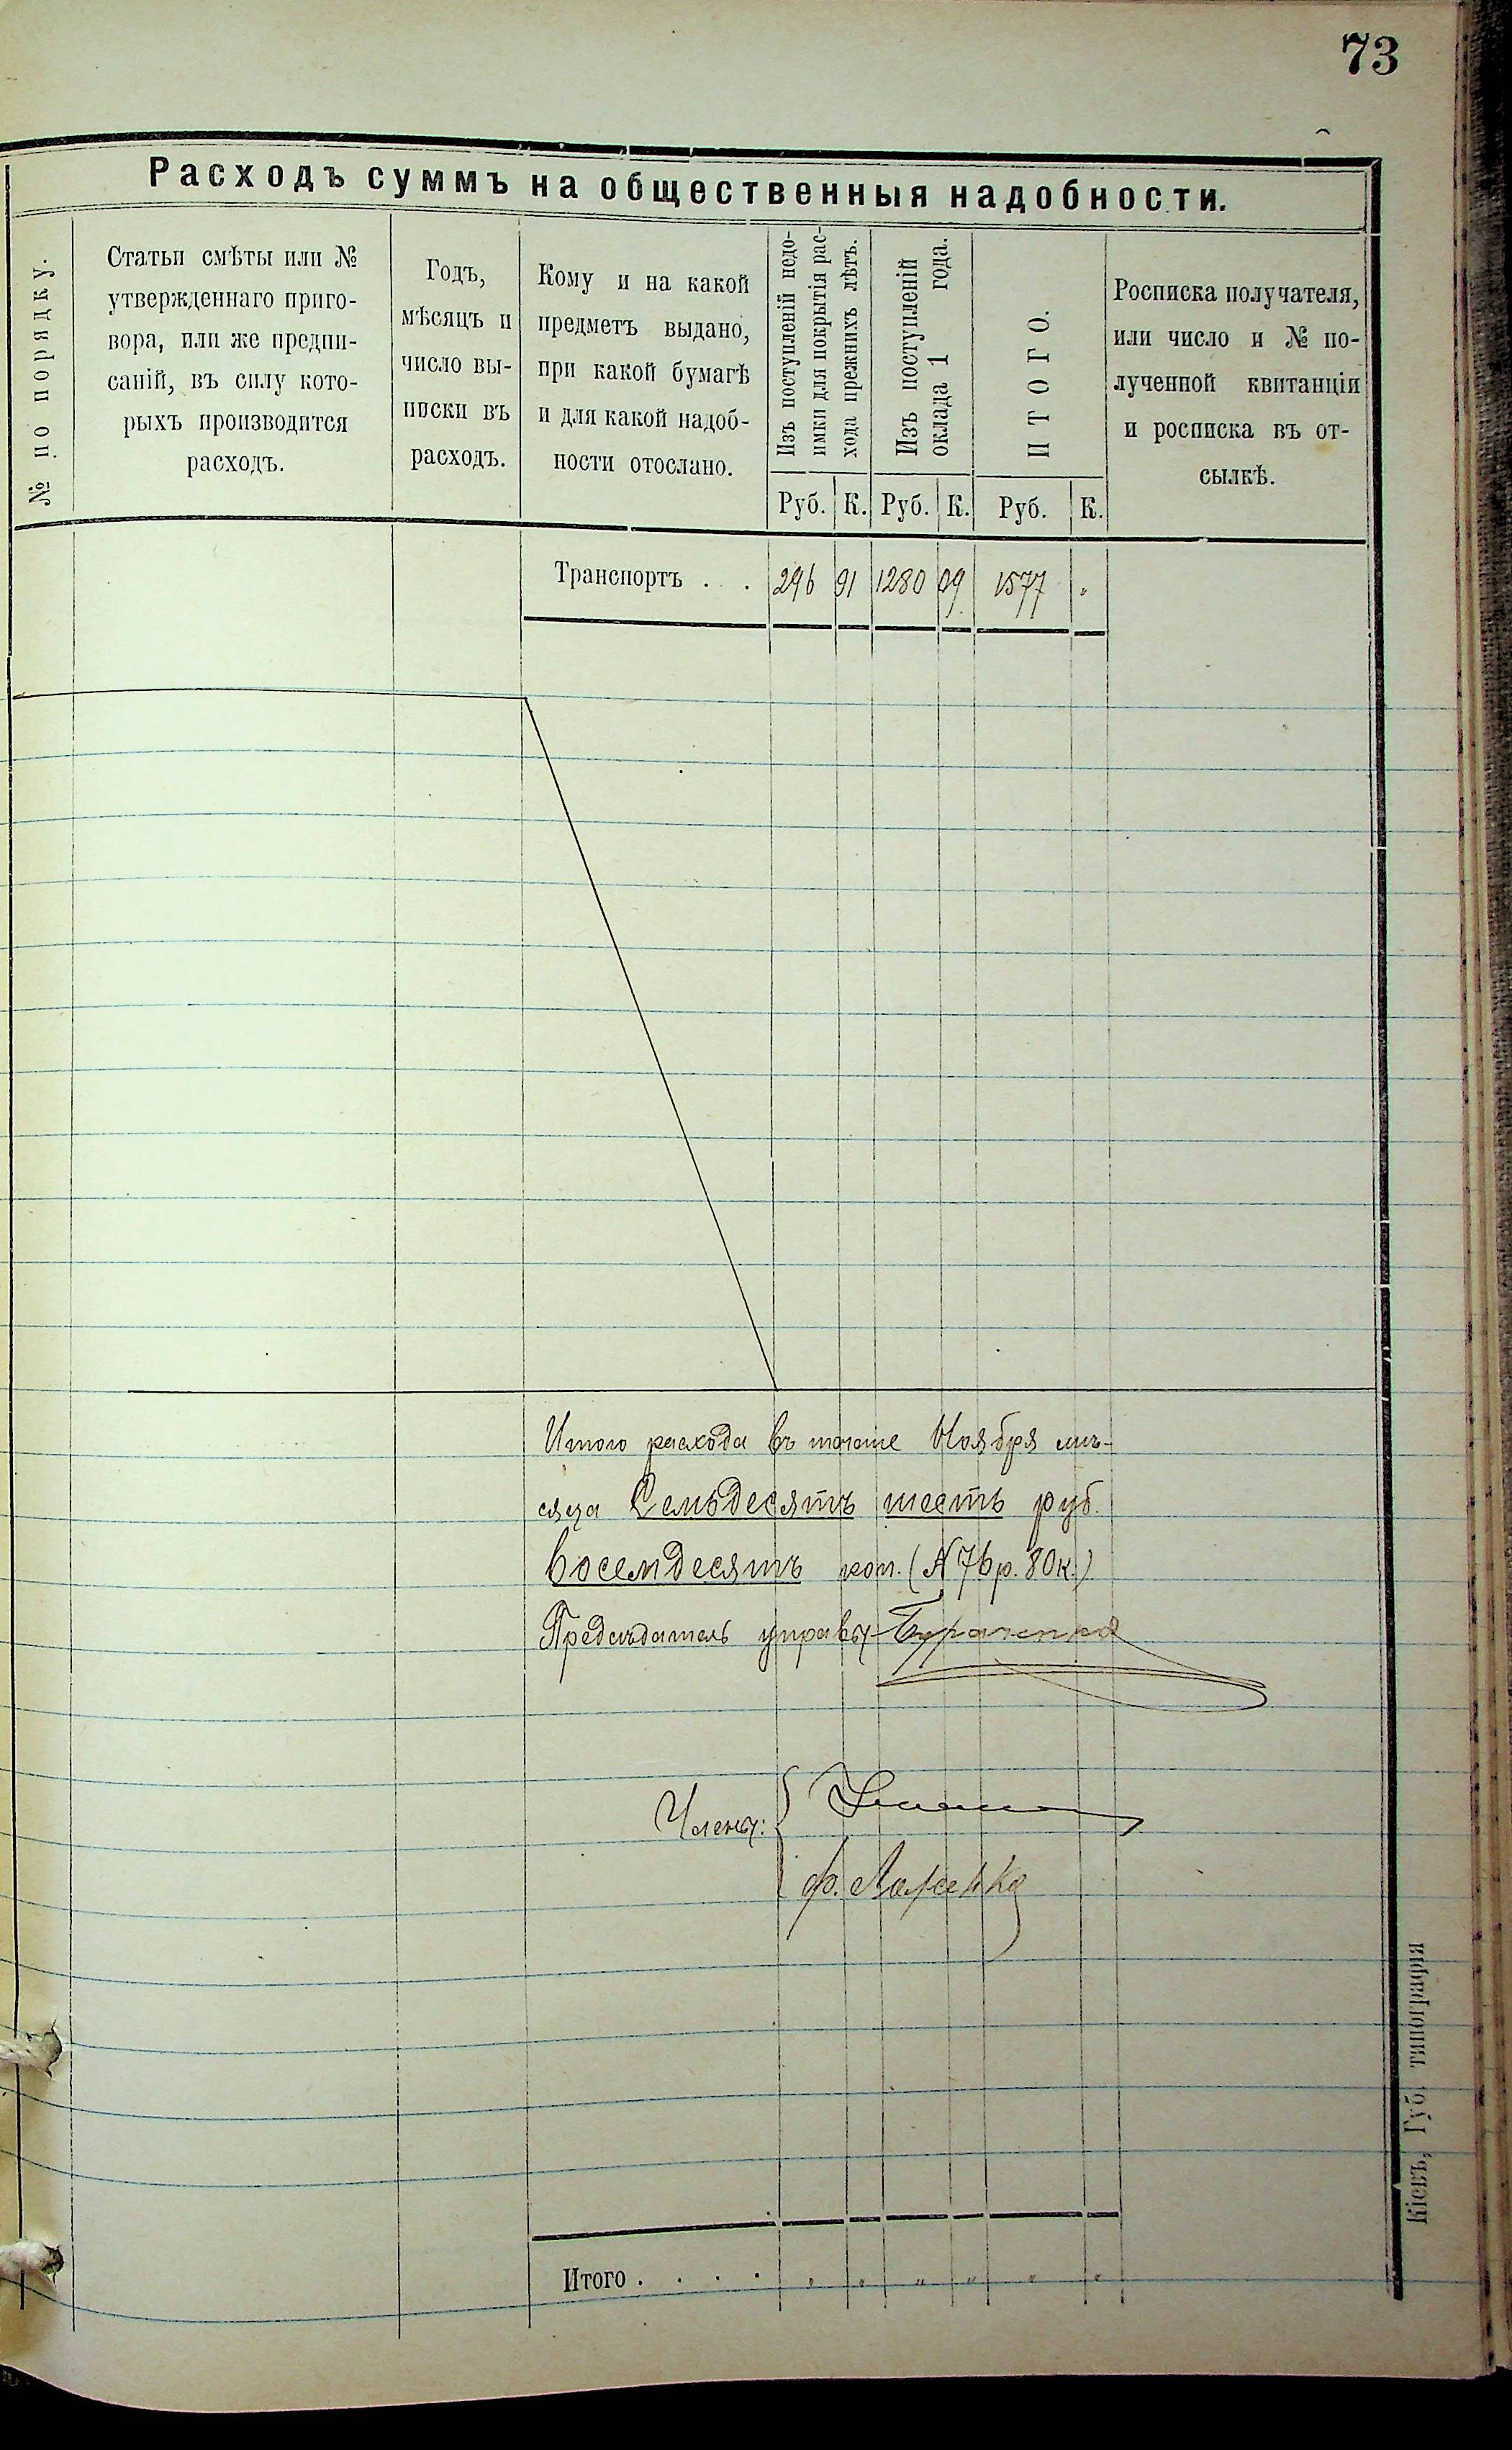 73
Расходъ суммъ на общественныя надобности.
№ по порядку.
Статьи смѣты или №
утвержденнаго приго-
вора, или же предпи-
саній, въ силу кото-
рыхъ производится
расходъ.
Годъ,
мѣсяцъ и
число вы-
писки въ
расходъ.
Кому и на какой
предметъ выдано,
при какой бумагѣ
и для какой надоб-
ности отослано.
Изъ поступленій недо-
имки для покрытія рас-
хода прежнихъ лѣтъ.
Изъ поступленій
оклада 1 года.
ИТОГО.
Росписка получателя,
или число и № по-
лученной квитанціи
и росписка въ от-
сылкѣ.
Руб. К. Руб. К. Руб. К.
Транспортъ . . 296 91 1280 09 1577 "
Итого расхода въ Ноября мѣ-
сяца Семьдесятъ шесть руб.
восемдесятъ коп. (№ 76 р. 80 к.)
Предсѣдатель управы
Члены:
Итого . . . . " " " " " "
Кіевъ, Губ. типографія